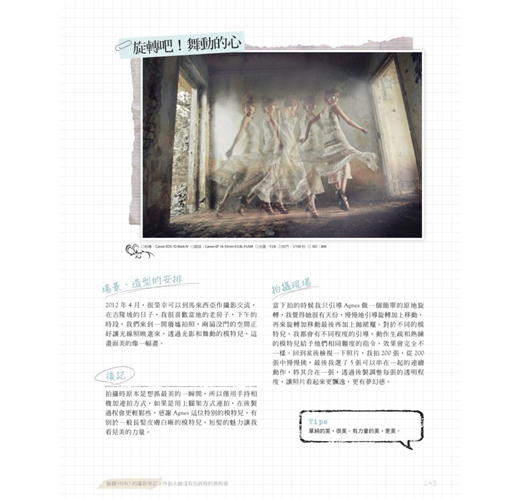 旋轉吧！舞動的心
場景、造型的安排
2012 年 4 月，很榮幸可以到馬來西亞作攝影交流，
在吉隆坡的日子，我很喜歡當地的老房子，下午的
時段，我們來到一間廢墟拍照，兩扇沒門的空間正
好讓光線照映進來，透過光影和舞動的模特兒，這
畫面美的像一幅畫。
後記
拍攝時原本是想抓最美的一瞬間，所以僅用手持相
機加連拍方式，如果是用上腳架方式連拍，在後製
過程會更輕鬆些。感謝 Agnes 這位特別的模特兒，有
別於一般長髮皮膚白晰的模特兒，短髮的魅力讓我
看見美的力量。
拍攝現場
當下拍的時候我只引導 Agnes 做一個簡單的原地旋
轉，我覺得她很有天份，慢慢地引導旋轉加上移動，
再來旋轉加移動最後再加上拋裙擺。對於不同的模
特兒，我都會有不同程度的引導。動作生疏和熟練
的模特兒給予他們相同難度的指令，效果會完全不
一樣。回到家後檢視一下照片，我拍 200 張，從 200
張中慢慢挑，最後我選了 5 張可以串在一起的連續
動作，將其合在一張，透過後製調整每張的透明程
度，讓照片看起來更飄逸，更有夢幻感。
Tips
單純的美，很美。有力量的美，更美。